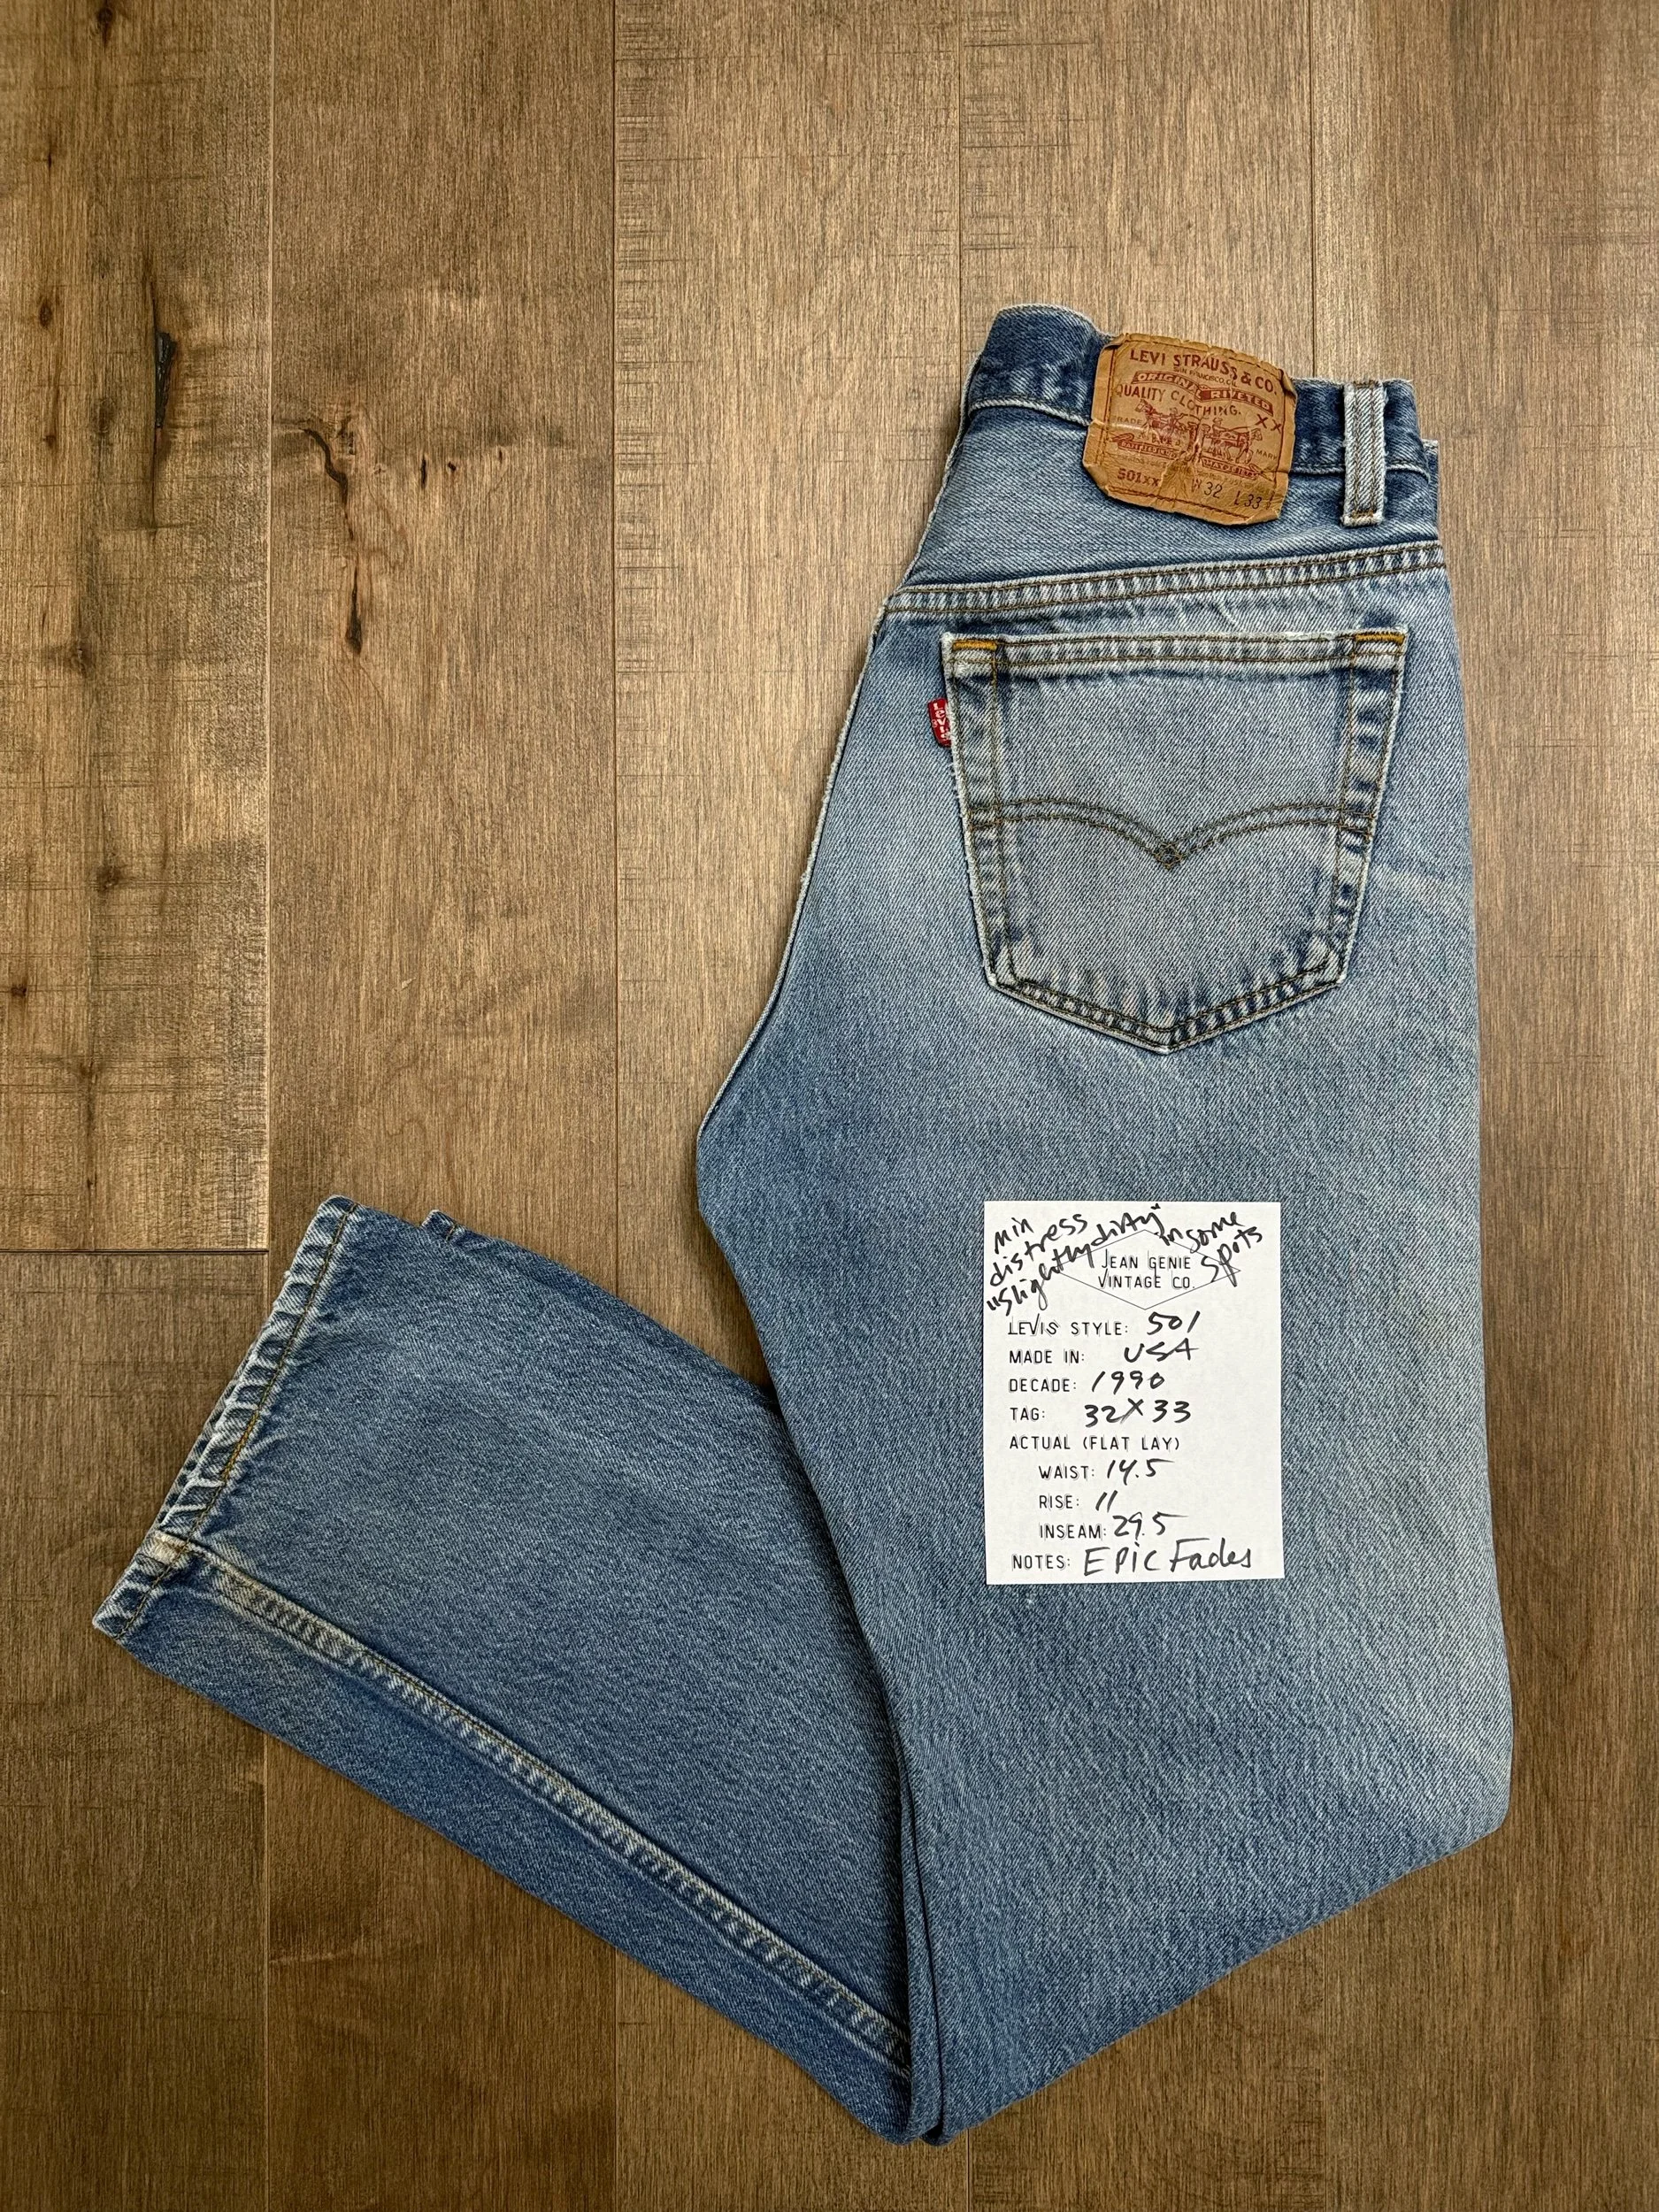 LEVI STRAUSS & CO.
SAN FRANCISCO, CAL.
ORIGINAL RIVETED
QUALITY CLOTHING.
XX
TRADE MARK
501XX W 32 L 33
LEVI'S
min
distress
"slightly dirty" in some
spots
JEAN GENIE
VINTAGE CO.
LEVIS STYLE: 501
MADE IN: USA
DECADE: 1990
TAG: 32X33
ACTUAL (FLAT LAY)
WAIST: 14.5
RISE: 11
INSEAM: 29.5
NOTES: EPIC Fades